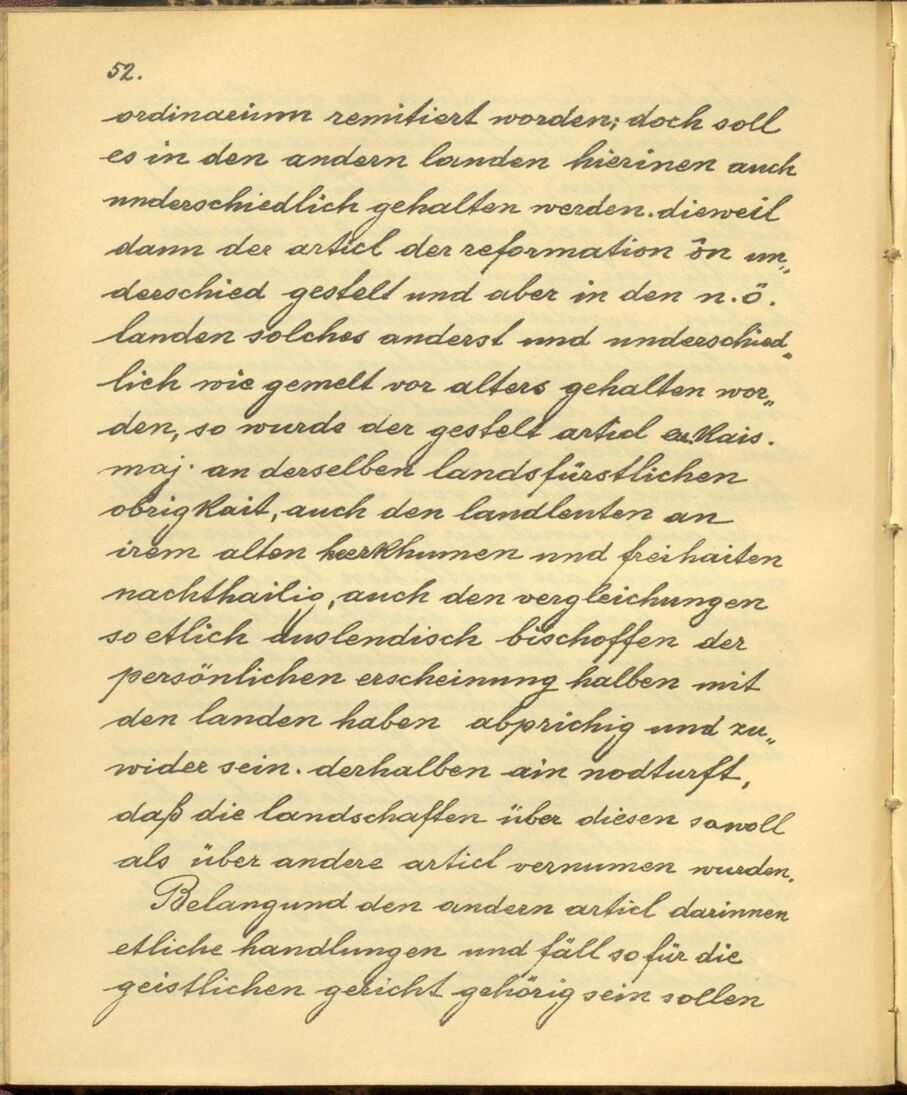 52.
ordinarium remitiert worden; doch soll
es in den andern landen hierinen auch
underschiedlich gehalten werden. dieweil
dann der articl der reformation ôn un„
derschied gestelt und aber in den n. ö.
landen solches anderst und underschied„
lich wie gemelt vor alters gehalten wor„
den, so wurde der gestelt articl eu. kais.
maj. an derselben landsfürstlichen
obrigkait, auch den landleuten an
irem alten heerkhumen und freihaiten
nachthailig, auch den vergleichungen
so etlich auslendisch bischoffen der
persönlichen erscheinung halben mit
den landen haben abprichig und zu„
wider sein. derhalben ain nodturft,
daß die landschaften über diesen sowoll
als über andere articl vernumen wurden.
Belangund den andern articl darinnen
etliche handlungen und fäll so für die
geistlichen gericht gehörig sein sollen